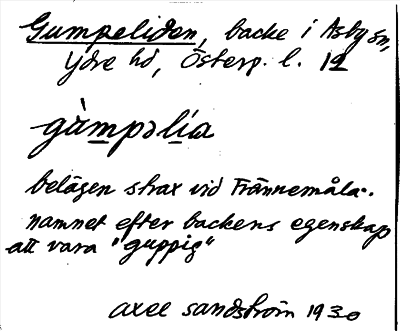 Gumpeliden, backe i Asby sn,
Ydre hd, Österg. l. 12
gàmpəlía
belägen strax vid Trännemåla.
namnet efter backens egenskap
att vara "guppig"
Axel Sandström 1930